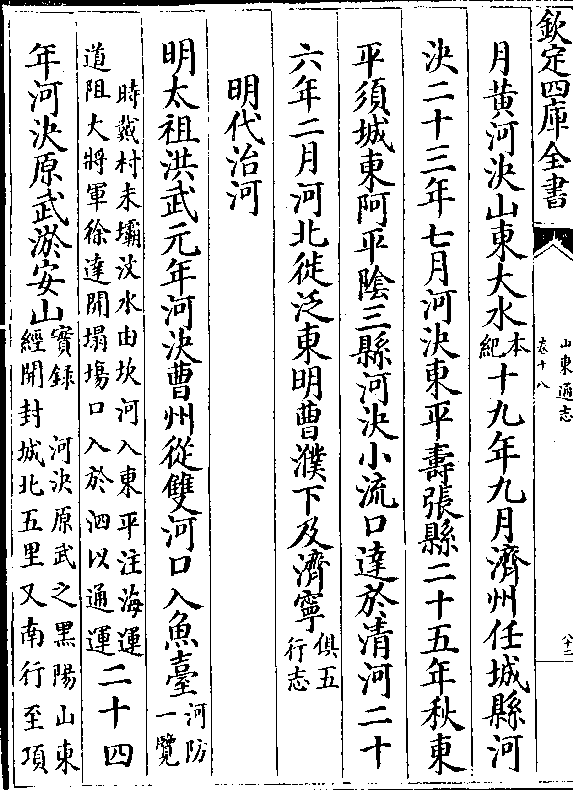 欽定四庫全書
山東通志
卷十八
月黄河决山東大水本紀十九年九月濟州任城縣河
决二十三年七月河决東平壽張縣二十五年秋東
平須城東阿平隂三縣河决小流口達於清河二十
六年二月河北徙泛東明曹濮下及濟寧俱五行志
明代治河
明太祖洪武元年河决曹州從雙河口入魚臺河防一覽
時戴村未壩汶水由坎河入東平注海運道阻大將軍徐達開塌塲口入於泗以通運二十四
年河决原武淤安山實録 河决原武之黒陽山東經開封城北五里又南行至項